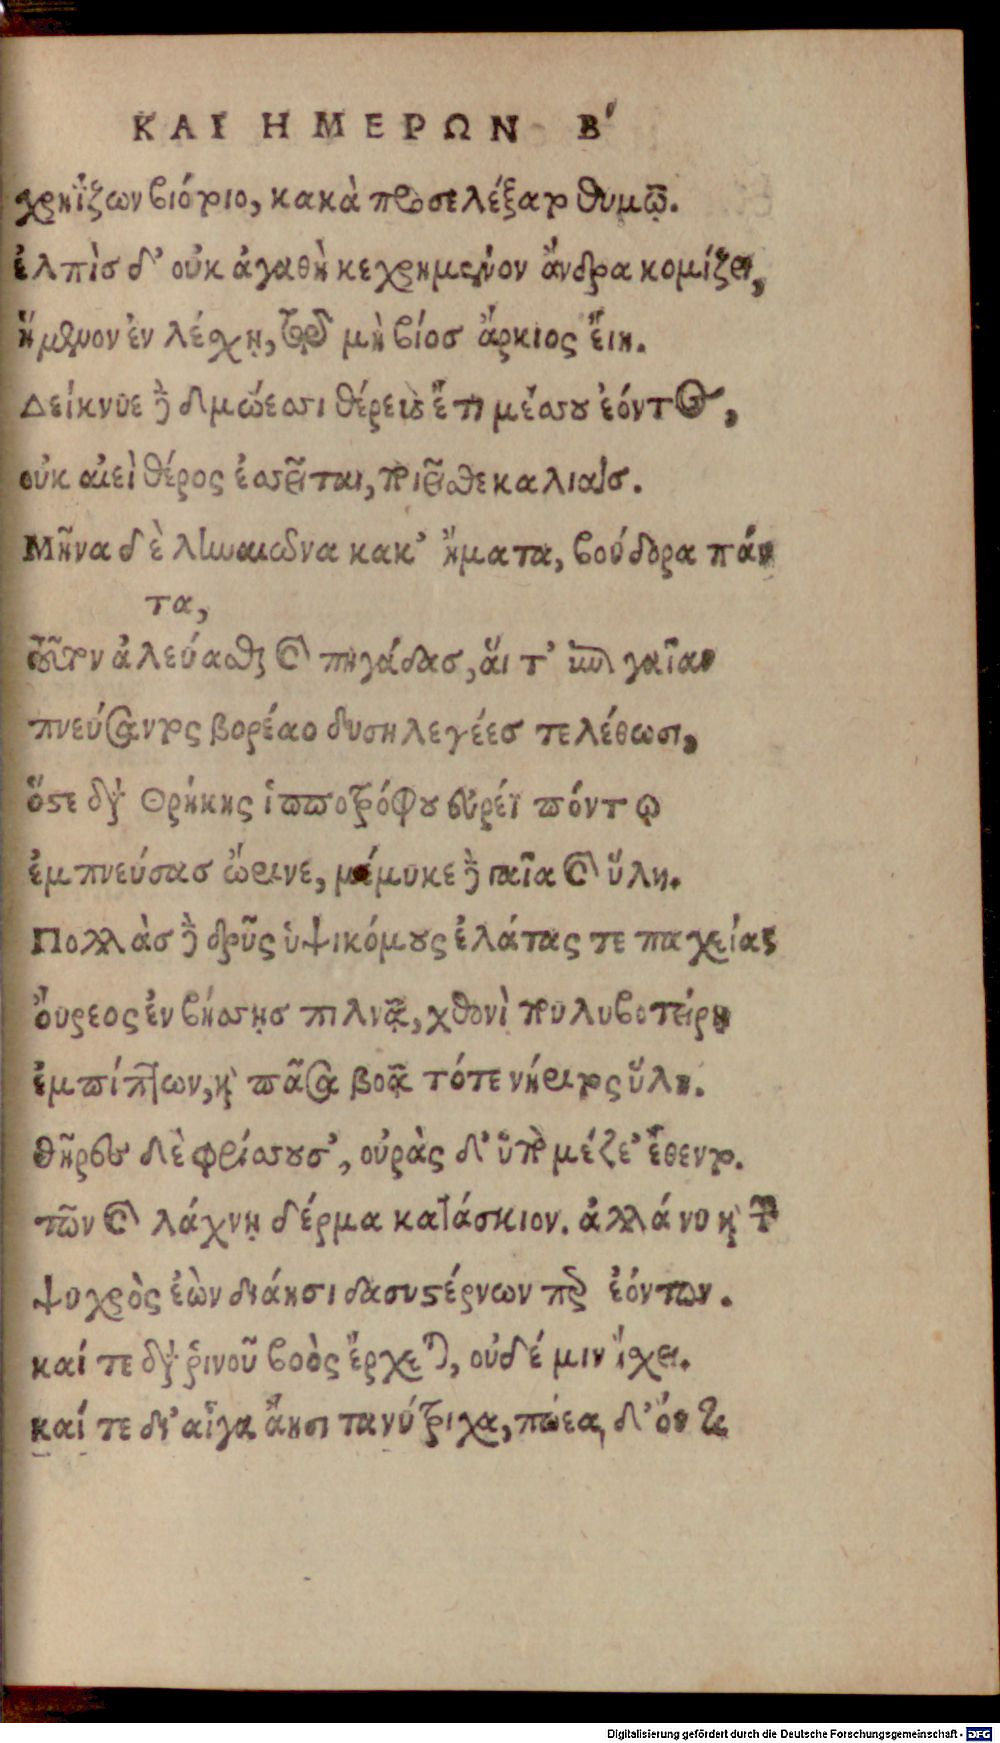 ΚΑΙ ΗΜΕΡΩΝ Β΄
χρηΐζων βιότοιο, κακὰ προσελέξατο θυμῷ.
ἐλπὶσ δ’ οὐκ ἀγαθὴ κεχρημένον ἄνδρα κομίζει,
ἥμενον ἐν λέσχῃ, τῷ μὴ βίοσ ἄρκιος εἴη.
Δείκνυε δὲ δμώεσσι θέρευς ἔτι μέσσου ἐόντος,
οὐκ αἰεὶ θέρος ἐσσεῖται, ποιεῖσθε καλιάσ.
Μῆνα δὲ ληναιῶνα κακ’ ἤματα, βούδορα πάν
τα,
τοῦτον ἀλεύασθαι καὶ πηγάδασ, αἵ τ’ ἐπὶ γαῖαν
πνεύσαντος βορέαο δυσηλεγέεσ τελέθωσι,
ὅστε διὰ Θρήκης ἱπποτρόφου εὐρέϊ πόντῳ
ἐμπνεύσασ ὤρινε, μέμυκε δὲ γαῖα καὶ ὕλη.
Πολλὰσ δὲ δρῦς ὑψικόμους ἐλάτας τε παχείας
οὔρεος ἐν βήσσῃσ πιλνᾷ, χθονὶ πουλυβοτείρῃ
ἐμπίπτων, καὶ πᾶσα βοᾷ τότε νήριτος ὕλη.
θῆρες δὲ φρίσσουσ’, οὐρὰς δ’ ὑπὸ μέζε’ ἔθεντο.
τῶν καὶ λάχνῃ δέρμα κατάσκιον. ἀλλά νυ καὶ τῶν
ψυχρὸς ἐὼν διάησι δασυστέρνων περ ἐόντων.
καί τε διὰ ῥινοῦ βοὸς ἔρχεται, οὐδέ μιν ἴσχει.
καί τε δι’ αἶγα ἄησι τανύτριχα, πώεα, δ’ οὔ τι
Digitalisierung gefördert durch die Deutsche Forschungsgemeinschaft - DFG